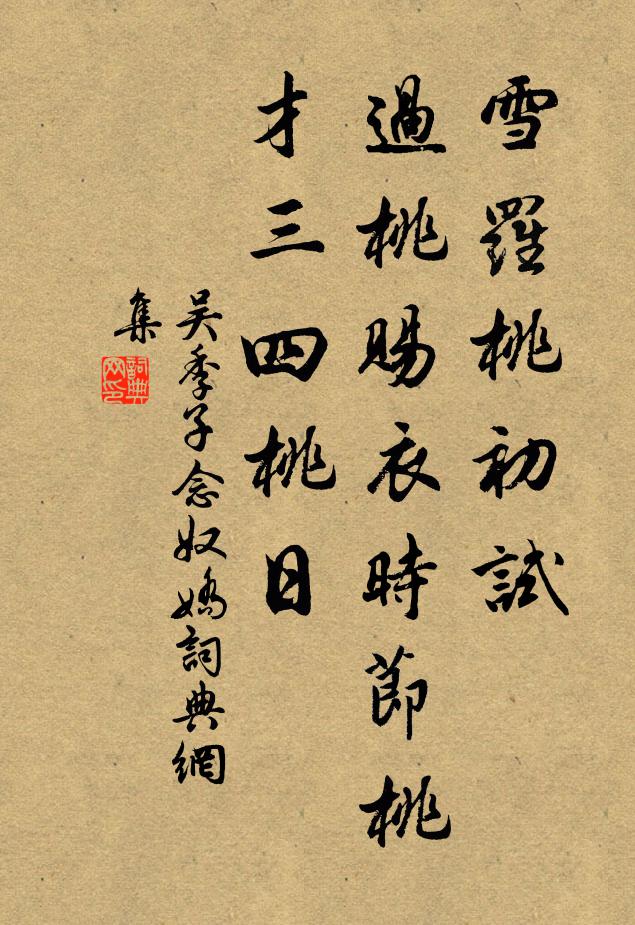 雪羅桃初試
過桃賜衣時節桃
才三四桃日
吴季子念奴嬌詞典網
集
詞典
网印